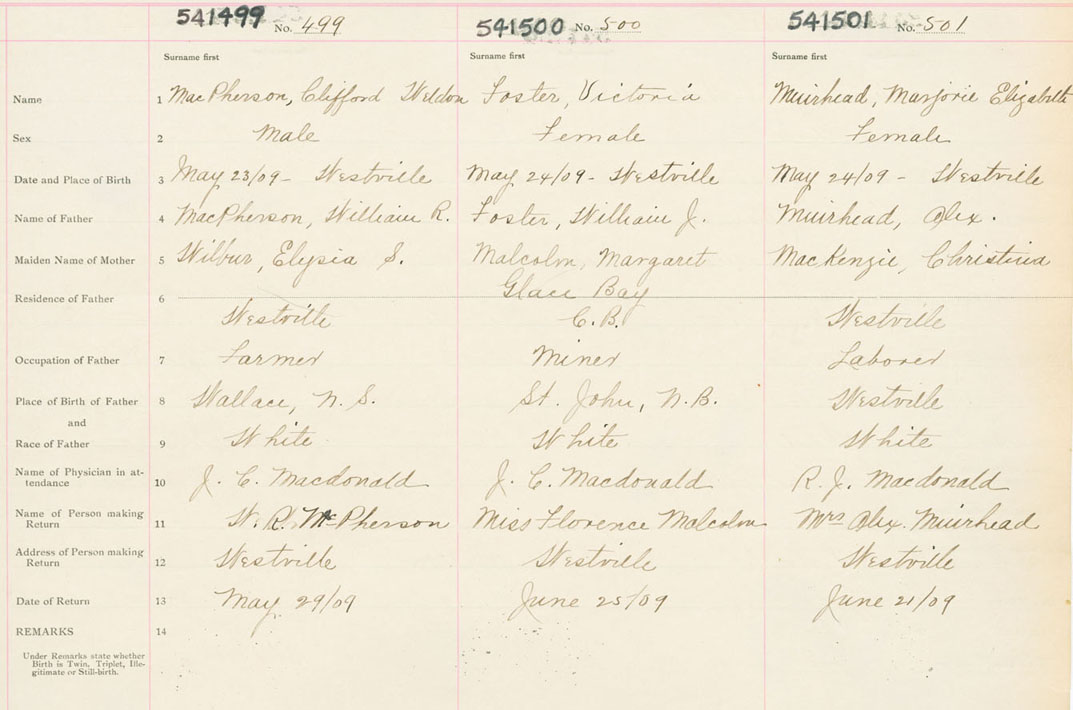 541499 No. 499 541500 No. 500 541501 No. 501
Surname first Surname first Surname first
Name 1 MacPherson, Clifford Weldon Foster, Victoria Muirhead, Marjorie Elizabeth
Sex 2 Male Female Female
Date and Place of Birth 3 May 23/09 - Westville May 24/09 - Westville May 24/09 - Westville
Name of Father 4 MacPherson, William R. Foster, William J. Muirhead, Alex.
Maiden Name of Mother 5 Wilbur, Elysia S. Malcolm, Margaret MacKenzie, Christina
Glace Bay
Residence of Father 6
Westville C.B. Westville
Occupation of Father 7 Farmer Miner Laborer
Place of Birth of Father 8 Wallace, N.S. St. John, N.B. Westville
and
Race of Father 9 White White White
Name of Physician in at-
tendance 10 J. C. Macdonald J. C. Macdonald R. J. Macdonald
Name of Person making
Return 11 W. R. McPherson Miss Florence Malcolm Mrs Alex. Muirhead
Address of Person making
Return 12 Westville Westville Westville
Date of Return 13 May 29/09 June 25/09 June 21/09
REMARKS 14
Under Remarks state whether
Birth is Twin, Triplet, Ille-
gitimate or Still-birth.